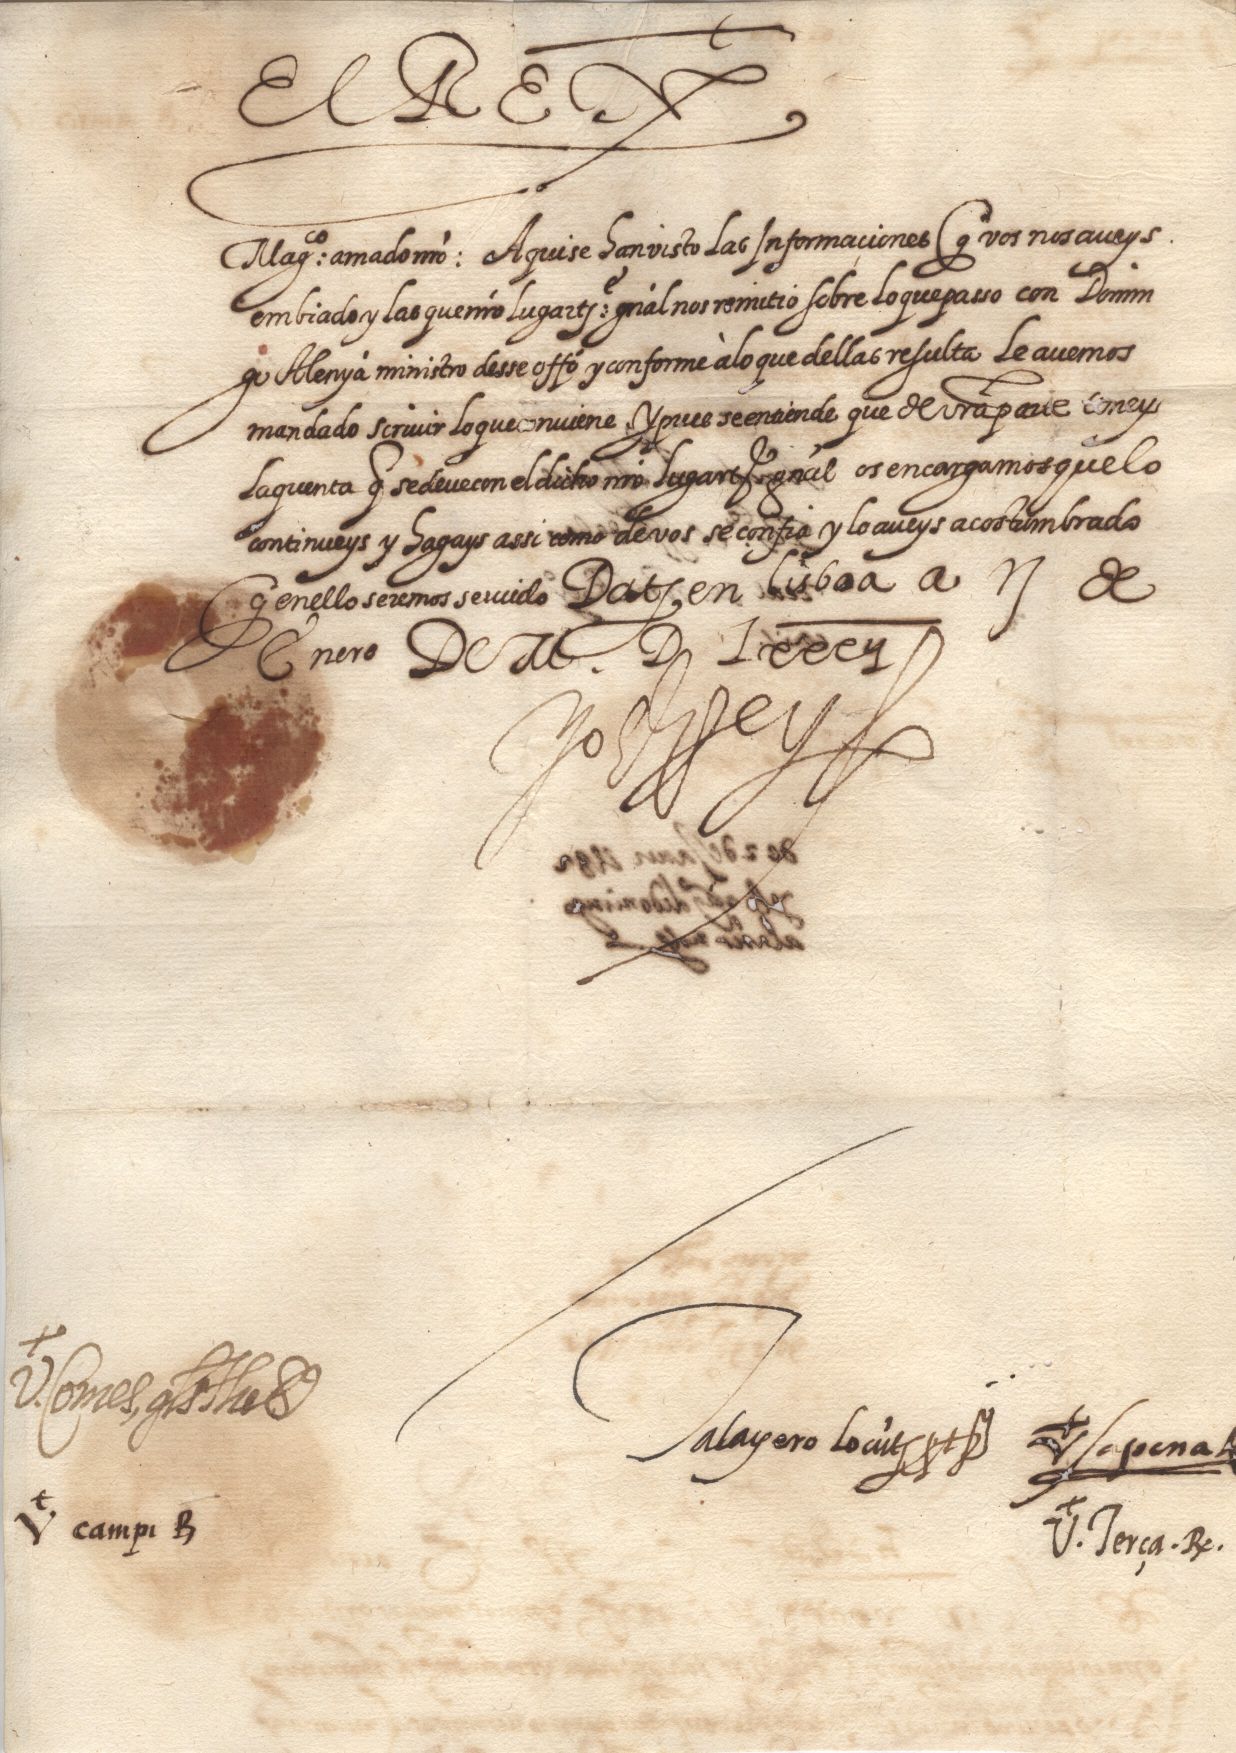 El REY
Mag.co amado nro: Aqui se han visto las Informaciones q vos nos aueys
embiado y las que nro lugart.e gnal nos remitio sobre lo que passo con Domin
go Alenyà ministro desse offo y conforme à lo que dellas resulta le auemos
mandado scriuir lo que conuiene, Y pues se entiende que de vra parte teneys
la quenta q se deue con el dicho nro lugart.e gnal os encargamos que lo
continueys y hagays assi como de vos se confia y lo aueys acostumbrado
q en ello seremos seruido Dat en Lisboa a ij de
Enero De M. D Lxxxij
yo el Rey
V.t Comes, gts Thes
Talayero locut
V.t Sapena R
V.t campi R
V.t Terça. R.